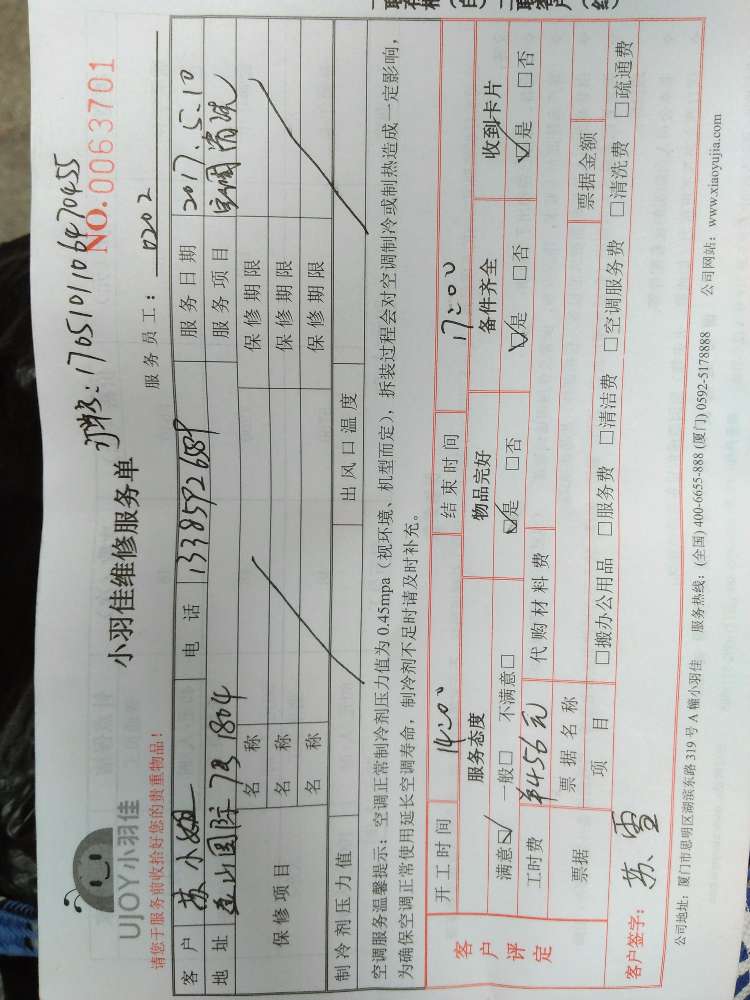 UJOY小羽佳
小羽佳维修服务单
订单号:1705101106470455
NO.0063701
请您于服务前收拾好您的贵重物品!
服务员工: 0202
客户 苏小姐 电话 1338592689 服务日期 2017.5.10
地址 国际 7B 1804 服务项目 空调清洗
保修项目 名称 保修期限
名称 保修期限
名称 保修期限
制冷剂压力值 出风口温度
空调服务温馨提示:空调正常制冷剂压力值为0.45mpa(视环境、机型而定),拆装过程会对空调制冷或制热造成一定影响,
为确保空调正常使用延长空调寿命,制冷剂不足时请及时补充。
客户评定
开工时间 14:00 结束时间 17:00
服务态度 物品完好 备件齐全 收到卡片
满意☑ 一般□ 不满意□ ☑是 □否 ☑是 □否 ☑是 □否
工时费 ¥456元 代购材料费
票据 票据名称 票据金额
项目 □搬办公用品 □服务费 □清洁费 □空调服务费 □清洗费 □疏通费
客户签字: 苏雪
公司地址:厦门市思明区湖滨东路319号A幢小羽佳 服务热线:(全国)400-6655-888 (厦门)0592-5178888 公司网站:www.xiaoyujia.com